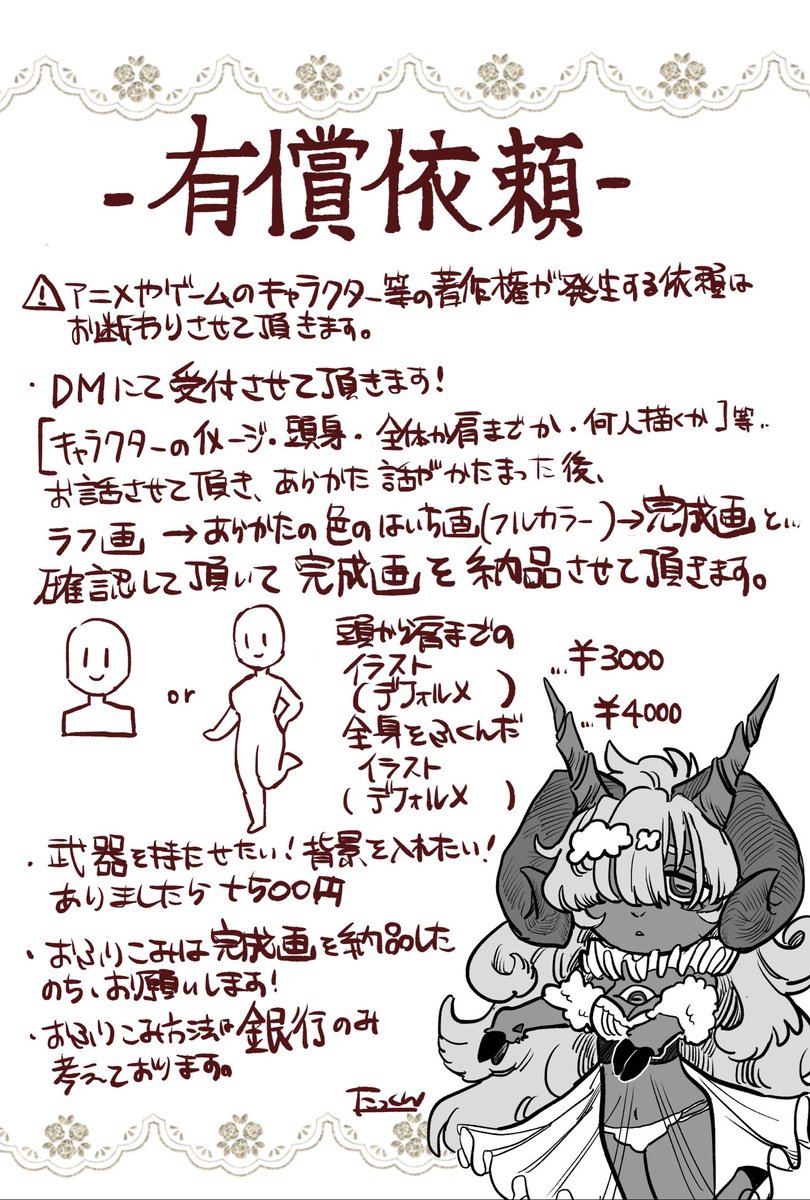 -有償依頼-
⚠アニメやゲームのキャラクター等の著作権が発生する依頼は
お断わりさせて頂きます。
・DMにて受付させて頂きます!
[キャラクターのイメージ・頭身・全体か肩までか・何人描くか]等..
お話させて頂き、あらかた話がかたまった後、
ラフ画→あらかたの色のはいち画(フルカラー)→完成画と...
確認して頂いて完成画を納品させて頂きます。
or
頭から肩までの
イラスト
(デフォルメ)
...¥3000
全身をふくんだ
イラスト
(デフォルメ)
...¥4000
・武器を持たせたい!背景を入れたい!
ありましたら+500円
・おふりこみは完成画を納品した
のち、お願いします!
・おふりこみ方法は銀行のみ
考えております。
たっくん